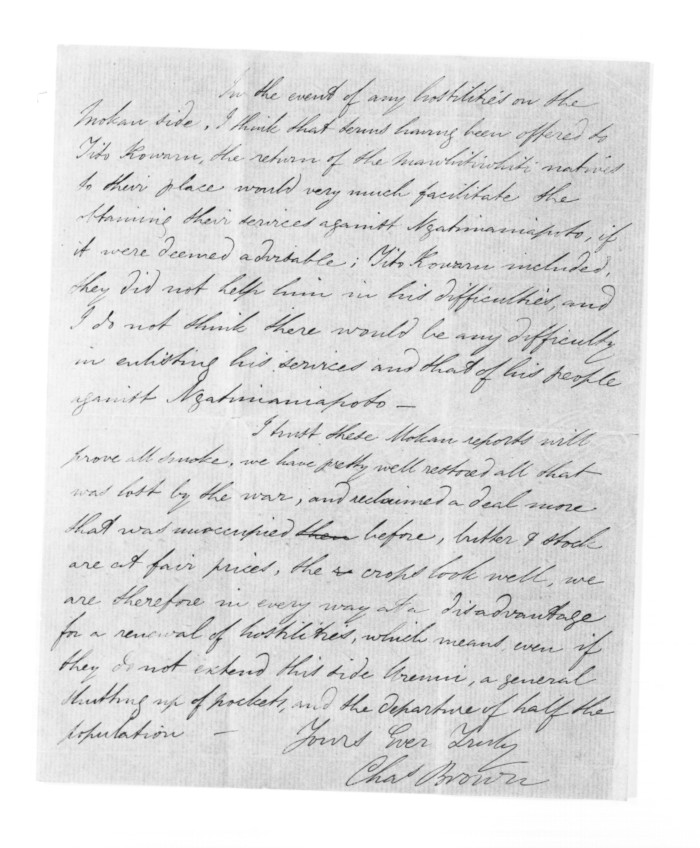 In the event of any hostilities on the
Mokau side, I think that terms having been offered to
Tito Kowaru, the return of the natives
to their place would very much facilitate the
obtaining their services against Ngatimaniapoto, if
it were deemed advisable; Tito Kowaru included,
they did not help him in his difficulties, and
I do not think there would be any difficulty
in enlisting his services and that of his people
against Ngatimaniapoto —
I trust these Mokau reports will
prove all smoke, we have pretty well restored all that
was lost by the war, and reclaimed a deal more
that was unoccupied then before, butter & stock
are at fair prices, the crops look well, we
are therefore in every way at a disadvantage
for a renewal of hostilities, which means, even if
they do not extend this side Urenui, a general
shutting up of pockets, and the departure of half the
population —
Yours Ever Truly
Chas Brown